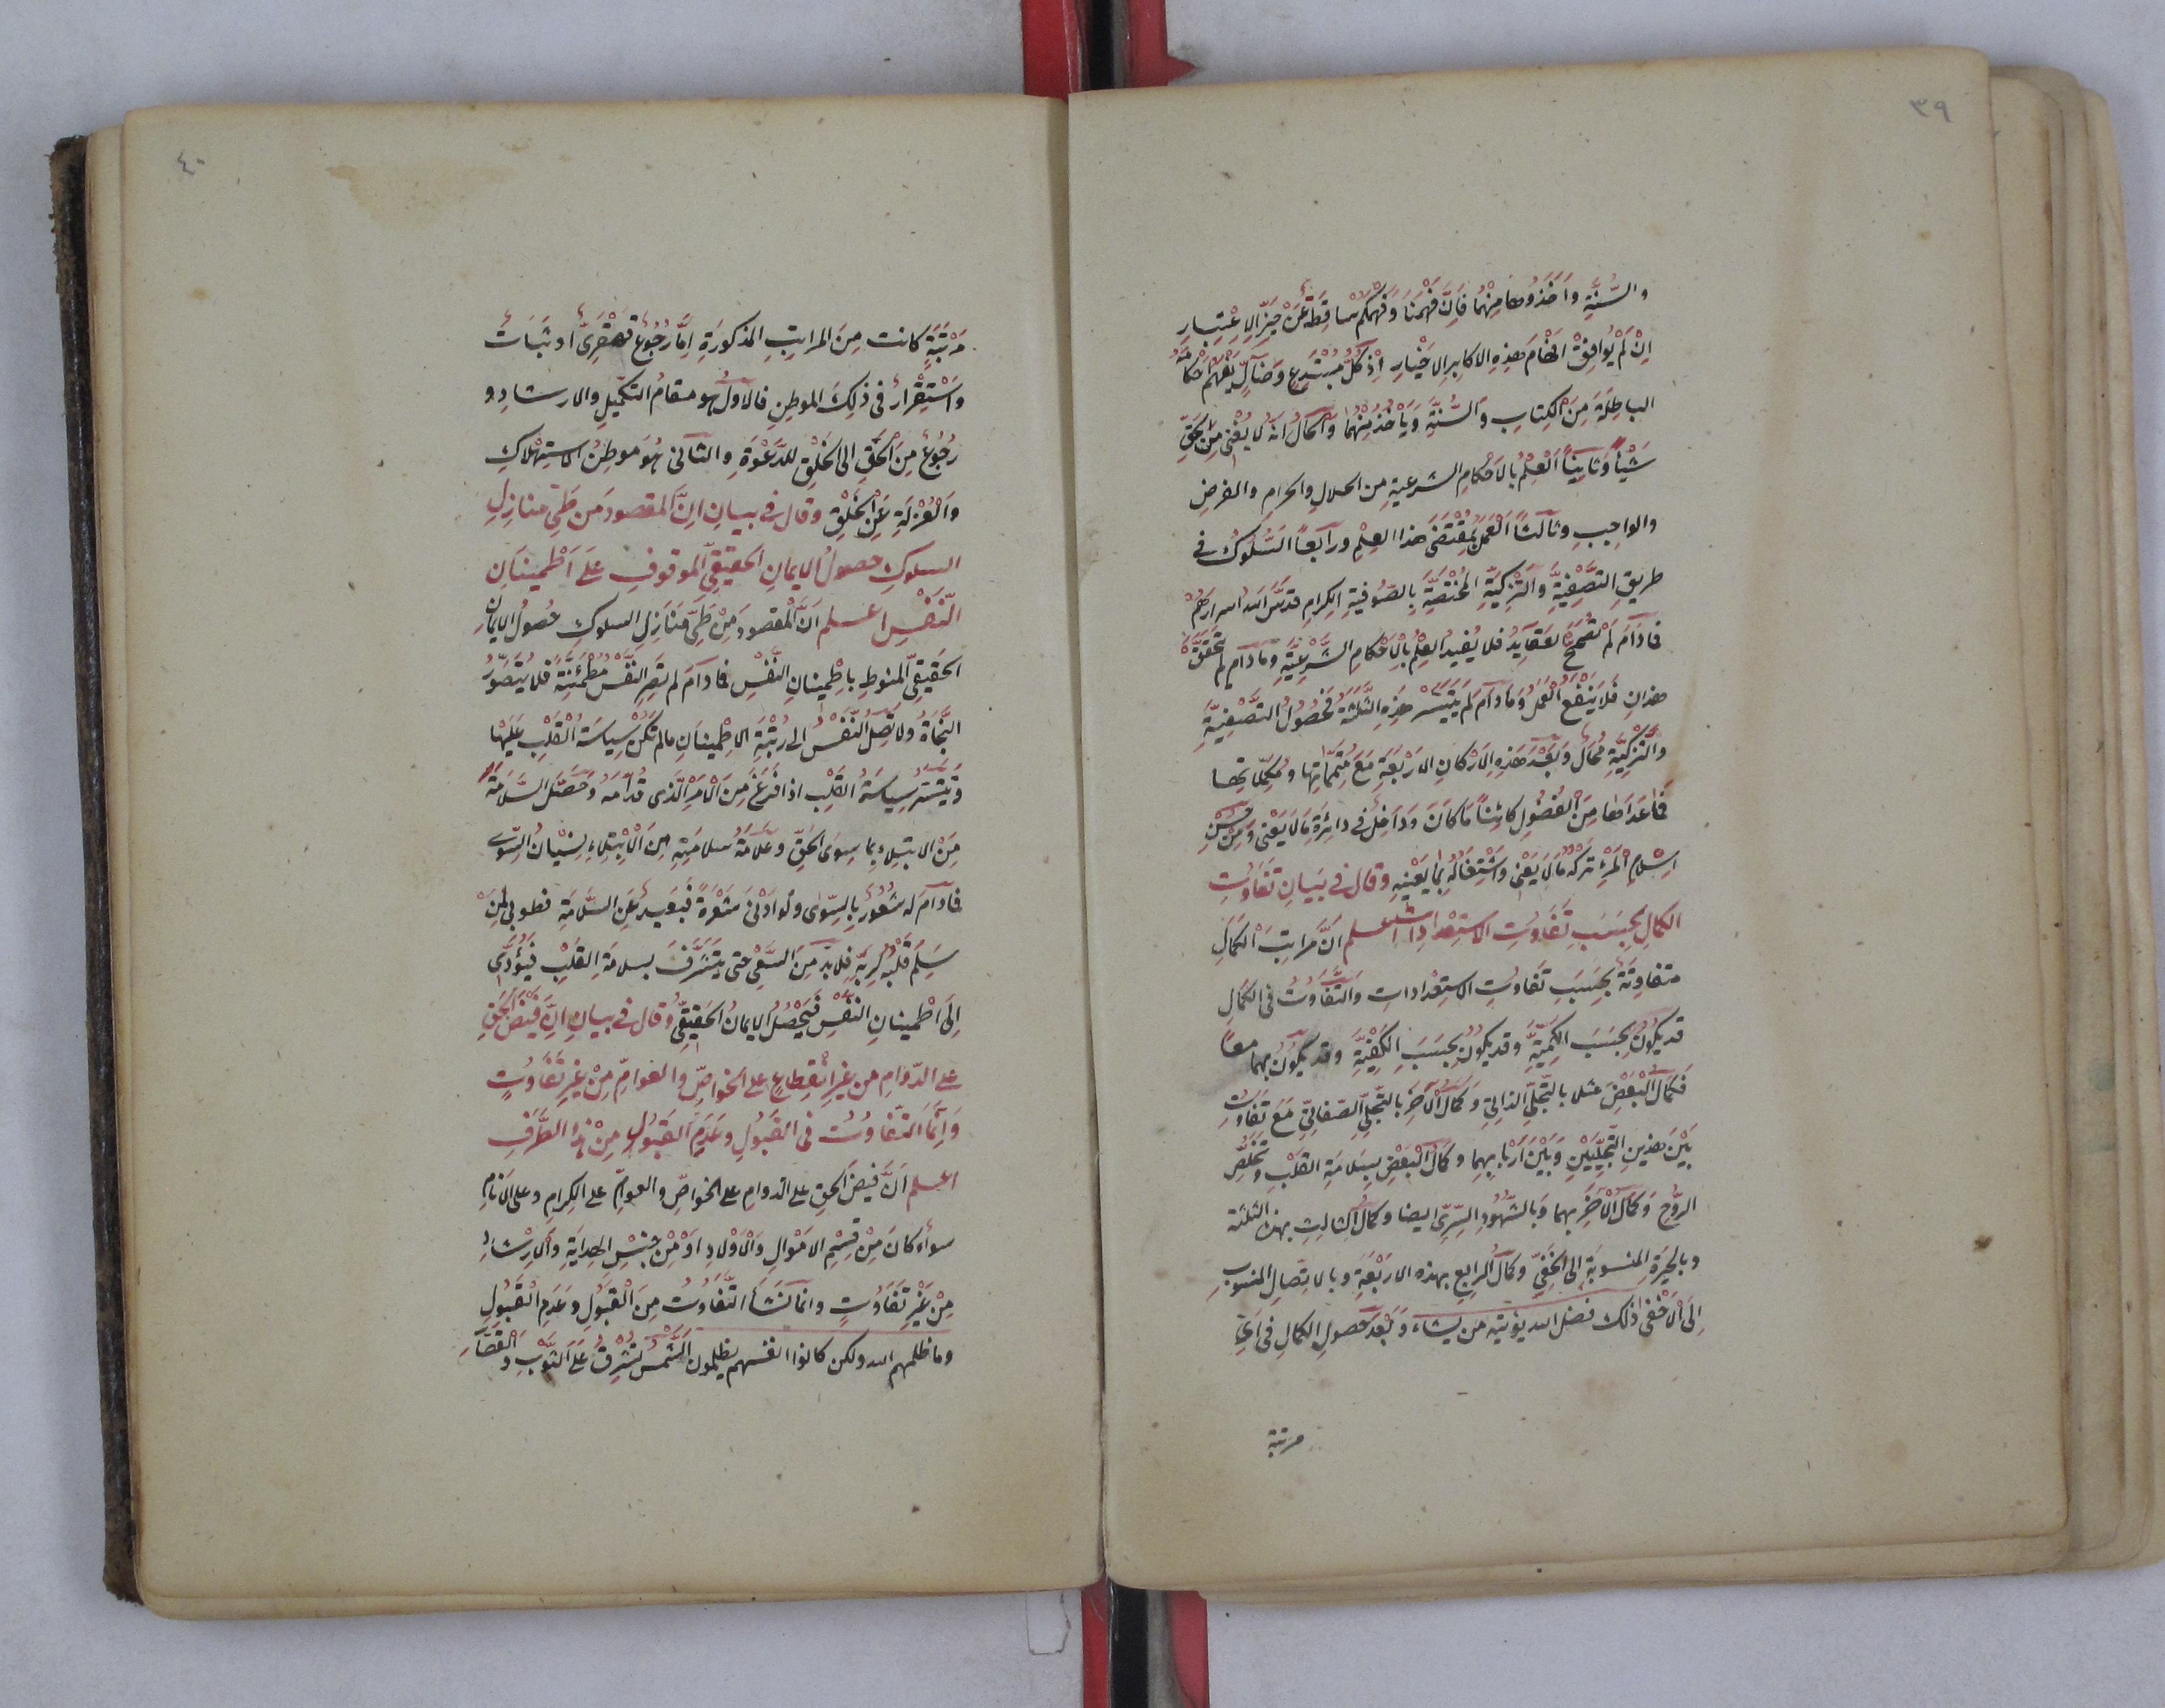 ٣٩
والسُّنَّةِ وأخَذُوها مِنْهُما فَإِنَّ فَهْمَنا وَفَهْمَكُمْ ساقِطَةٌ عَنْ حَيِّزِ الاِعْتِبارِ
اِنْ لَمْ يُوافِقْ افْهامَ هذِهِ الاكابِرِ الاَخْيارِ اِذْ كُلُّ مُبْتَدِعٍ وَضَالٍّ يَفْهَمُ اَحْكامَهُ
الباطِلَةَ مِنَ الكِتابِ والسُّنَّةِ وَيَأْخُذُ مِنْهُما وَالْحالُ انَّهُ لا يُغْنِى مِنَ الْحَقِّ
شَيْئاً وَثانِياً اَلْعِلْمُ بِالاَحْكامِ الشرعيةِ من الحلالِ والحرامِ والفرضِ
والواجبِ وثالثاً اَلْعَمَلُ بِمُقْتَضَى هذا العِلْمِ ورابعاً السُّلُوكُ فى
طريقِ التَّصْفِيَةِ والتَّزْكِيَةِ المُخْتَصَّةِ بِالصُّوفِيَةِ الكِرامِ قدَّسَ الله اسرارَهُمْ
فما دَامَ لَمْ تُصَحَّحِ العَقايِدُ فلا يُفيدُ العِلْمُ بِالاَحْكامِ الشَّرْعِيَّةِ ومادَامَ لم يَتَحَقَّقْ
هذانِ فَلا يَنْفَعُ الْعَمَلُ وَمادامَ لَمْ يَتَيَسَّرْ هَذِهِ الثَّلثَةُ فَحُصُولُ التَّصْفِيَةِ
والتَّزْكِيَةِ مُحَالٌ وَبَعْدَ هَذِهِ الاَرْكانِ الاَرْبَعَةِ مَعَ مُتَمِّماتِها ومُكَمِّلاتِها
فَما عَداها مِنَ الْفُضُولِ كائِناً مَا كَانَ ودَاخِلٌ فى دائِرَةِ مَالاَيَعْنى وَمِنْ حُسْنِ
اِسْلامِ الْمَرْءِ تَرْكُهُ مَالاَيَعْنى وَاشْتِغالُهُ بِمَا يَعْنِيهِ وقال فى بَيانِ تَفاوُتِ
الكمالِ بِحَسَبِ تَفاوُتِ الاستِعْداداتِ اعلم اَنَّ مراتبَ الكمالِ
متفاوِتَةٌ بِحَسَبِ تَفاوُتِ الاستِعْداداتِ والتَّفاوُتُ فى الكمالِ
قد يكُونُ بِحَسَبِ الكَمِيَّةِ وقد يكُونُ بِحَسَبِ الكَيْفِيَّةِ وقد يكُونُ بهما معاً
فَكمالُ الْبَعْضِ مثلا بالتَّجلِّى الذاتىِ وكمالُ الآخَرِ بالتَّجلِّى الصّفاتِىِّ مَعَ تَفاوُتٍ
بَيْنَ هذينِ التَّجلِّيَيْنِ وَبَيْنَ اَرْبابِهِما وكمالُ الْبَعْضِ بِسَلامَةِ القَلْبِ وَتَخَلُّصِ
الرُّوحِ وَكمالُ الآخَرِ بهما وَبِالشُّهُودِ السِّرِّىِّ ايضا وكمالُ الثالثِ بهذه الثلثة
وبالحَيْرَةِ المنسوبَةِ الى الخَفِىِّ وكمالُ الرابعِ بهذه الاربَعَةِ وبالاتِّصالِ المنسوبِ
اِلَى الاَخْفى ذلك فضل الله يؤتيه من يشاء وَبَعْدَ حصولِ الكمالِ فى اَىِّ
مرتبة
٤٠
مَرْتَبَةٍ كانت مِنَ المراتِبِ المذكورَةِ اِمّا رُجُوعٌ قَهْقَرِىٌّ اوثَبَاتٌ
واسْتِقْرارٌ فى ذلِكَ الموطِنِ فالاَوّلُ هو مقامُ التكميلِ والارشادِ و
رُجُوعٌ مِنَ الْحَقِّ الى الْخَلْقِ للدَّعْوَةِ والثانى هُوَ مَوطِنُ الاسْتِهْلاكِ
والْعُزْلَةِ عَنِ الخَلْقِ وقال فى بيانِ انَّ المقصودَ من طَىِّ منازِلِ
السلوكِ حصولُ الايمانِ الحقيقىِّ الموقوفِ على اطْمينانِ
النَّفْسِ اعلم اَنَّ الْمقصودَ مِنْ طَىِّ مَنازِلِ السلوكِ حُصولُ الايمانِ
الحَقيقِىِّ المَنُوطِ باِطْمِينانِ النَّفْسِ فما دامَ لم تَصِرِ النَّفْسُ مُطْمَئِنَّةً فلا يُتَصَوَّرُ
النَّجاةُ ولا تَصِلُ النَّفْسُ الى رُتْبَةِ الاِطْمِينانِ مالم تَكُنْ سِياسَةُ القَلْبِ عَلَيْها
وَتَيَسَّرُ سِياسَةُ القَلْبِ اذا فَرَغَ مِنَ الاَمْرِ الَّذى قُدّامَهُ وَحَصَّلَ السَّلامَةَ
مِنَ الابتلاءِ بما سِوَى الحَقِّ وعَلامَةُ سلامَتِهِ مِنَ الاِبْتِلاءِ نِسْيانُ السِّوى
فما دَامَ لَهُ شُعُورٌ بِالسِّوى ولو ادْنى شَعْرَةٍ فَبَعيدٌ عَنِ السَّلامَةِ فطوبى لِمَنْ
سَلِمَ قَلْبُهُ لِرَبِّهِ فلابدَّ مِنَ السَّعْىِ حتى يَتَشَرَّفَ بسلامَةِ القَلْبِ فَيُؤَدِّى
اِلَى اطْمينانِ النَّفْسِ فَيَحْصُلُ الايمانُ الحَقيقِىُّ وقال فى بيانِ انَّ فَيْضَ الْحَقِّ
على الدّوامِ من غيرِ انْقِطاعٍ على الخواصِّ والعوامِّ مِنْ غيرِ تَفاوُتٍ
وَاِنَّما التَّفاوُتُ فى القَبُولِ وَعَدَمِ القَبُولِ مِنْ هذا الطَّرَفِ
اعلم اَنَّ فَيْضَ الحقِ على الدوامِ على الخواصِّ والعوامِّ على الكِرامِ وعلى الاَنامِ
سواء كانَ مِنْ قِسْمِ الاَمْوالِ وَالاَوْلادِ اَوْ مِنْ جِنْسِ الهدايَةِ والاِرْشادِ
مِنْ غَيْرِ تَفاوُتٍ وانما نَشَأَ التَّفاوُتُ مِنَ الْقَبُولِ وعَدَمِ الْقَبُولِ
وما ظلمهم الله ولكن كانوا انفسهم يظلمون الشَّمْسُ تُشْرِقُ عَلَى الثَّوْبِ والْقَصَّارِ